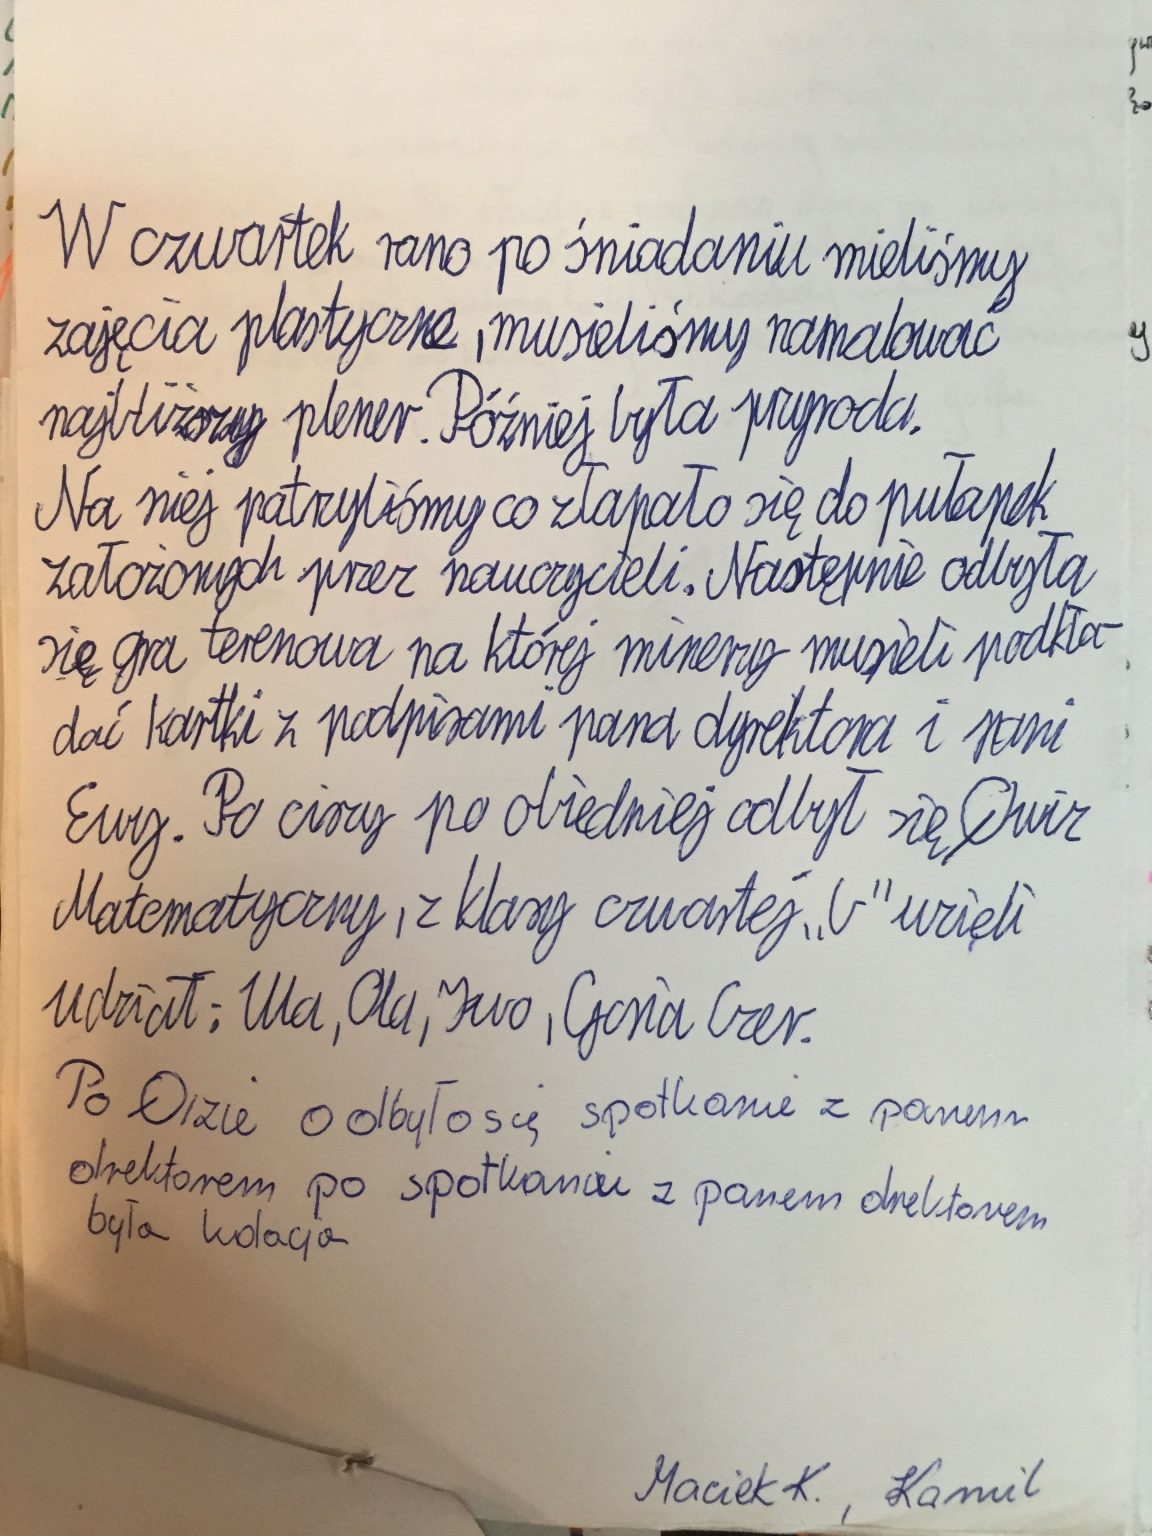 W czwartek rano po śniadaniu mieliśmy
zajęcia plastyczne, musieliśmy namalować
najbliższy plener. Później była przyroda.
Na niej patrzyliśmy co złapało się do pułapek
założonych przez nauczycieli. Następnie odbyła
się gra terenowa na której minerzy musieli podkła-
dać kartki z podpisami pana dyrektora i pani
Ewy. Po ciszy po obiedniej odbył się Qwiz
Matematyczny, z klasy czwartej "b" wzięli
udział: Ula, Ola, Iwo, Gosia Czer.
Po Qizie odbyło się spotkanie z panem
drektorem po spotkaniu z panem drektorem
była kolacja
Maciek K., Kamil